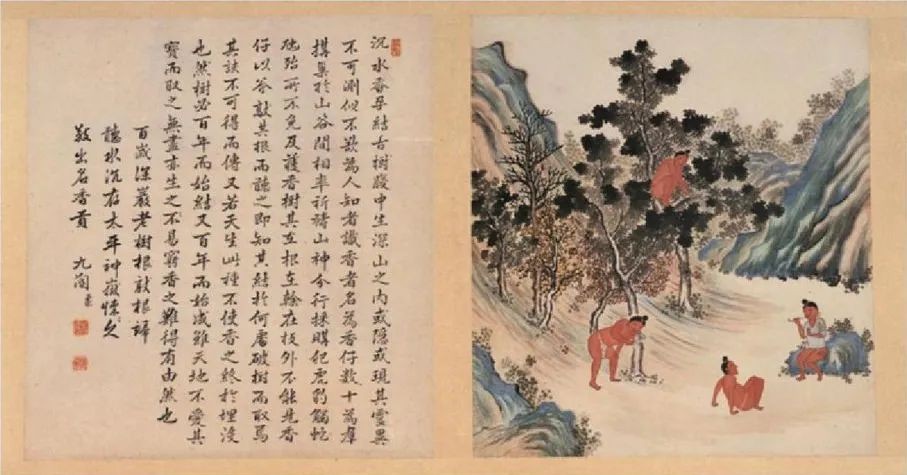 沉水香孕結古樹腹中生深山之內或隱或現其靈異
不可測似不欲為人知者識香者名為香仔數十為羣
搆巢於山谷間相率祈禱山神分行採購犯虎豹觸蛇
虺殆所不免及獲香樹其在根在榦在枝外不能見香
仔以斧敲其根而聽之即知其結於何處破樹而取焉
其訣不可得而傳又若天生此種不使香之終於埋沒
也然樹必百年而始結又百年而始成雖天地不愛其
寶而取之無盡亦生之不易窮香之難得有由然也
百歲深巖老樹根敲根諦
聽水沉存太平神嶽懷久
敍出名香貢
九